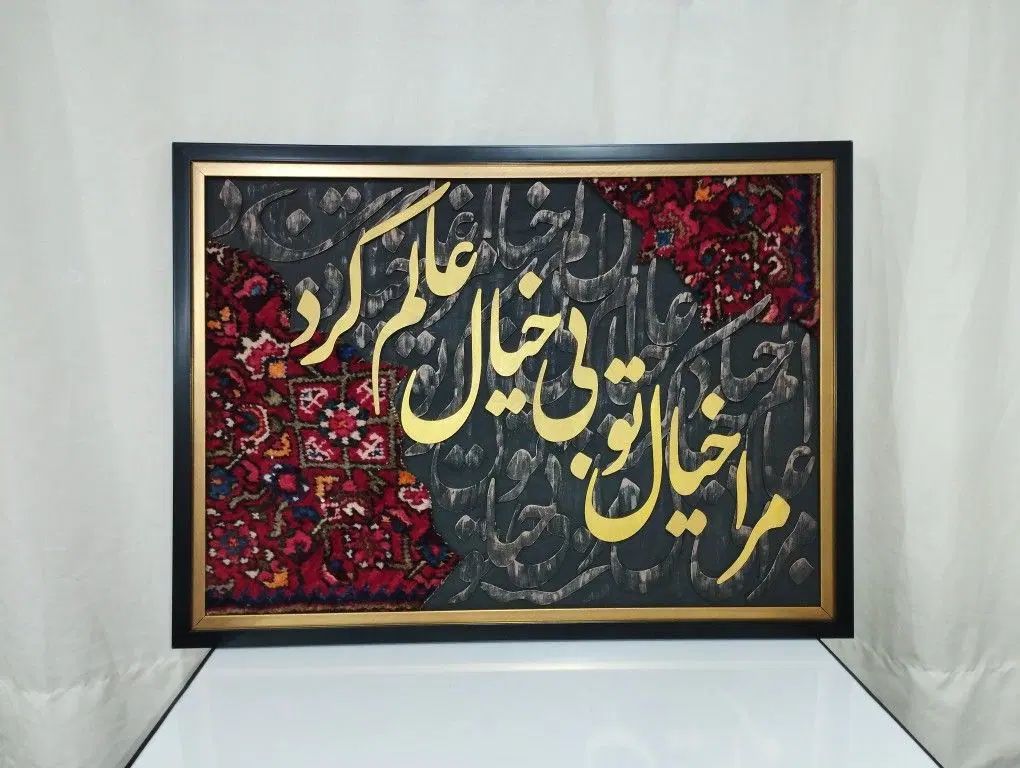 مرا خیال تو بی خیال عالم کرد